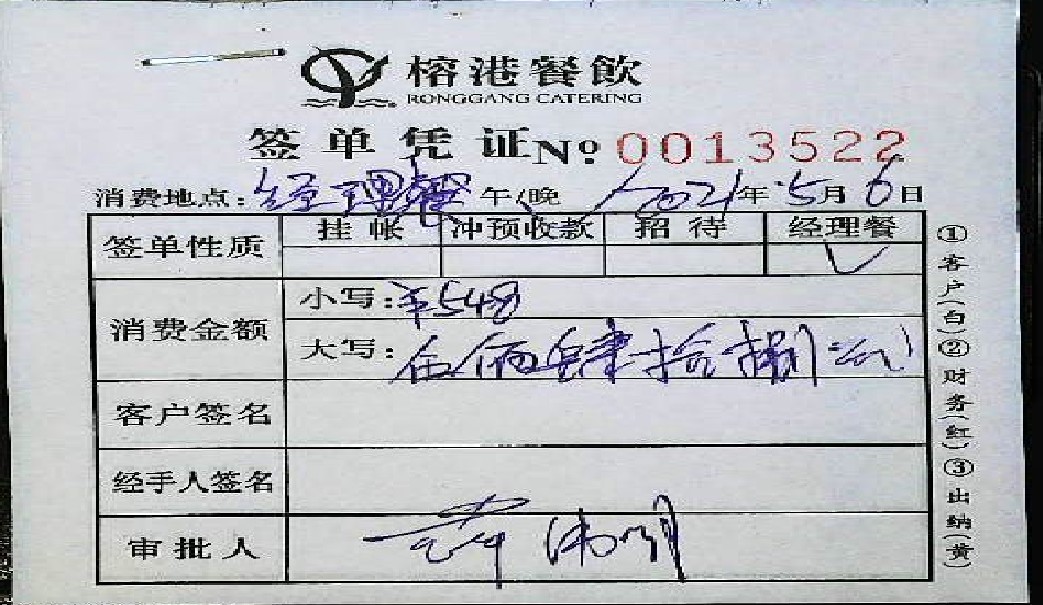 榕港餐飲
RONGGANG CATERING
签单凭证 No. 0013522
消费地点: 经理餐 午/晚 2021年5月6日
签单性质 挂帐 冲预收款 招待 经理餐
✓
消费金额 小写: ¥548
大写: 伍佰肆拾捌元
客户签名
经手人签名
审批人
①客户(白)②财务(红)③出纳(黄)